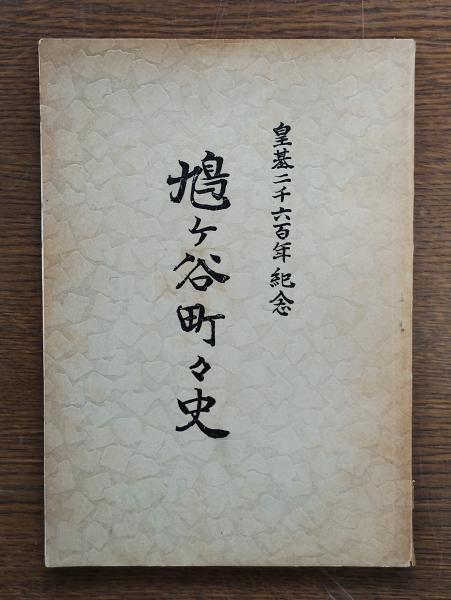 皇基二千六百年紀念
鳩ヶ谷町々史